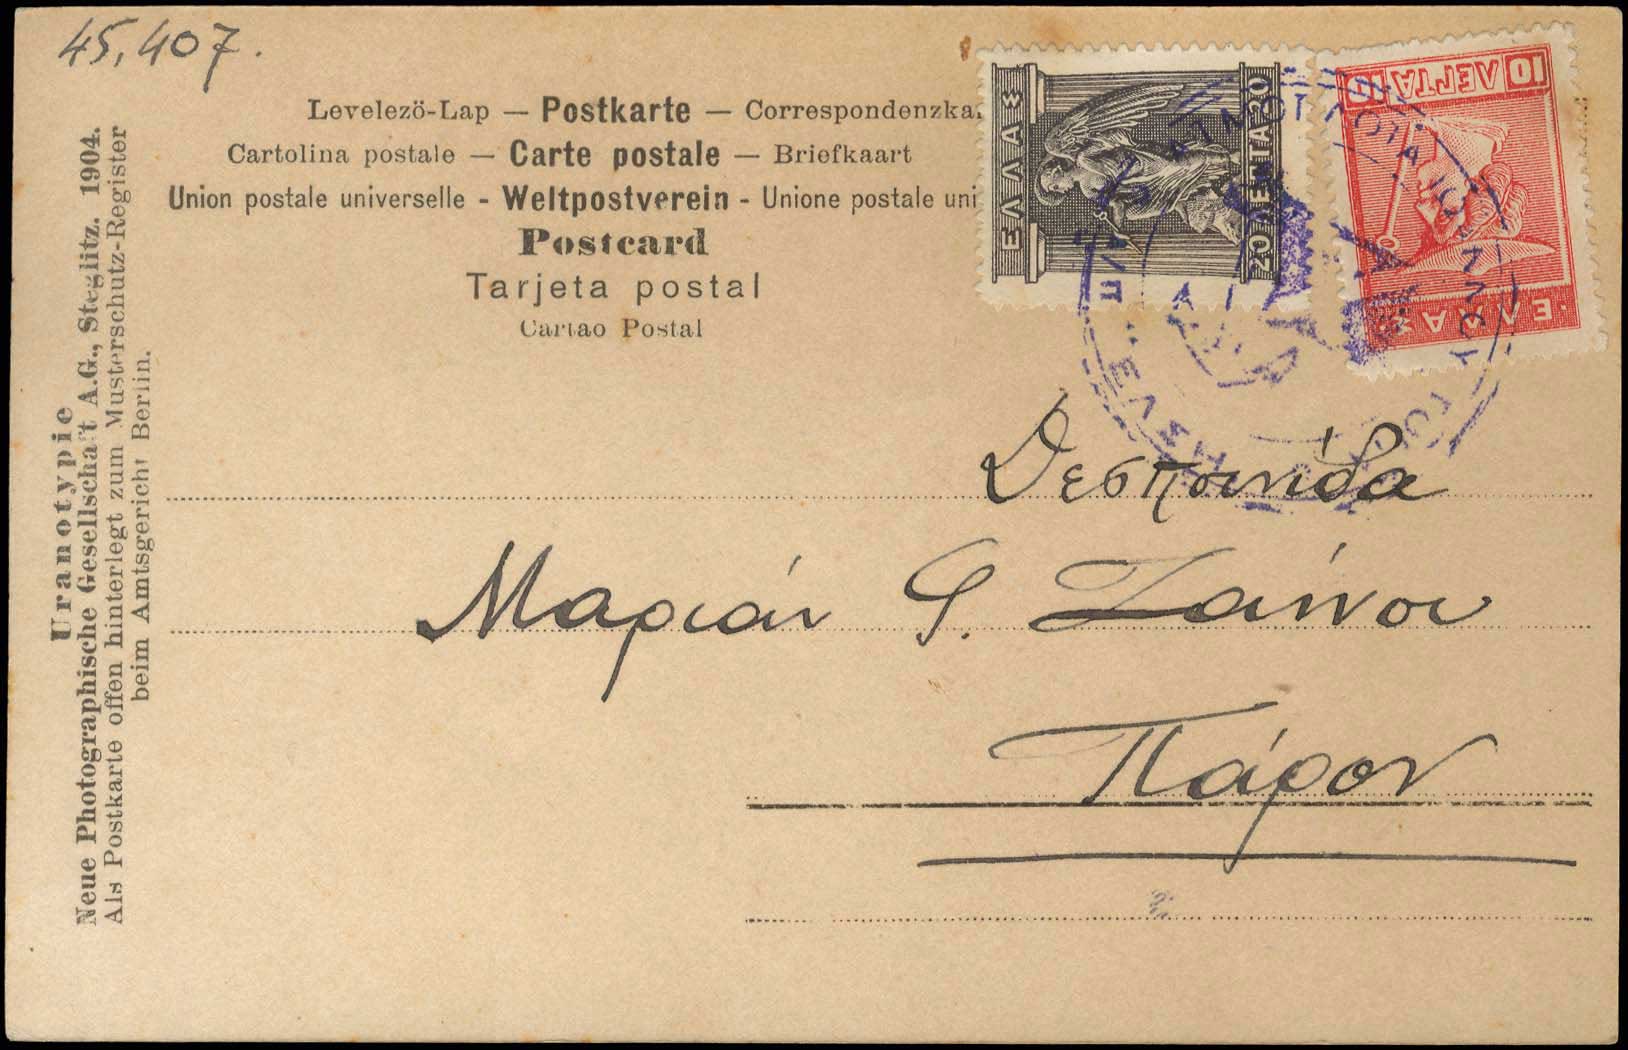 45,407.
Levelezö-Lap — Postkarte — Correspondenzka
Cartolina postale — Carte postale — Briefkaart
Union postale universelle - Weltpostverein - Unione postale uni
Postcard
Tarjeta postal
Cartao Postal
Uranotypie
Neue Photographische Gesellschaft A.G., Steglitz. 1904.
Als Postkarte offen hinterlegt zum Musterschutz-Register
beim Amtsgericht Berlin.
ΕΛΛΑΣ
20 ΛΕΠΤΑ 20
10 ΛΕΠΤΑ 10
ΕΛΛΑΣ
Α/Π
ΕΛΛΗΝ
Δεσποινίδα
Μαριάν Φ. Ζάννου
Πάρον